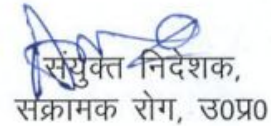 संयुक्त निदेशक,
संक्रामक रोग, उ0प्र0